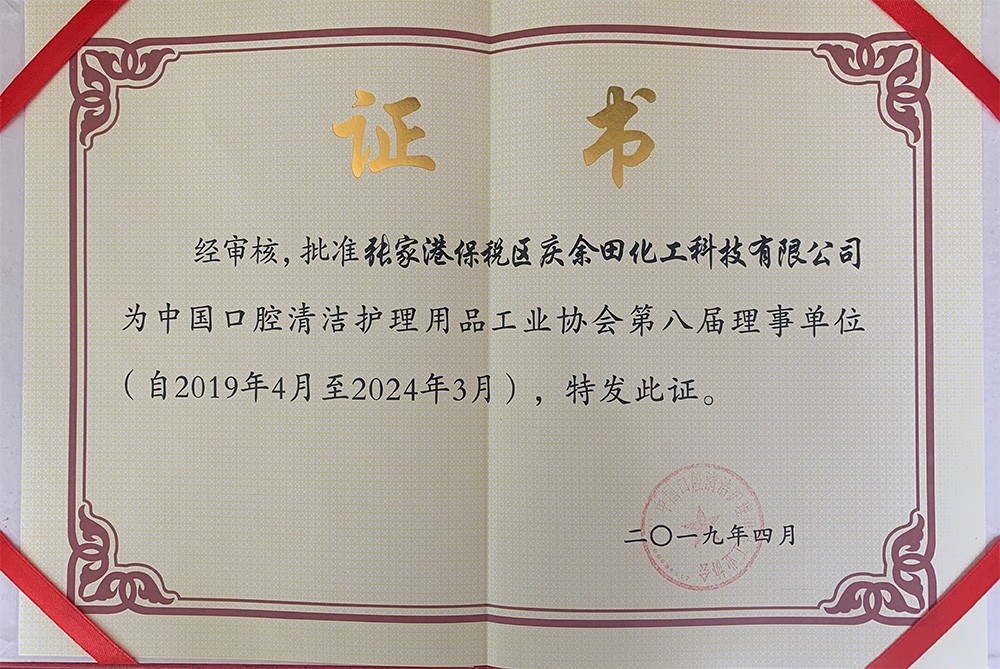 证书
经审核，批准张家港保税区庆余田化工科技有限公司
为中国口腔清洁护理用品工业协会第八届理事单位
（自2019年4月至2024年3月），特发此证。
中国口腔清洁护理用品工业协会
二〇一九年四月